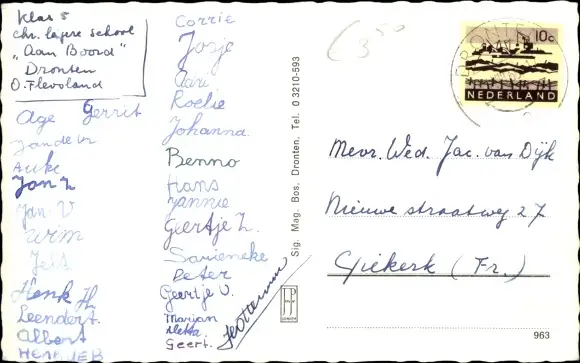 klas 5
chr. lagere school
"Aan Boord"
Dronten
O. Flevoland
Age Gerrit
Jan de Vr
Auke
Jan L
Jan. V
Wim
Jelt
Henk H
Leendert.
Albert
Corrie
Josje
Roelie
Johanna.
Benno
Hans
Jannie
Geertje L.
Sarieneke
Peter
Geertje V.
Marjan
Geert.
3 50
Sig. Mag. Bos, Dronten, Tel. 0 3210-593
10c
NEDERLAND
Mevr. Wed. Jac. van Dijk
Nieuwe straatweg 27
Giekerk (Fr.)
963